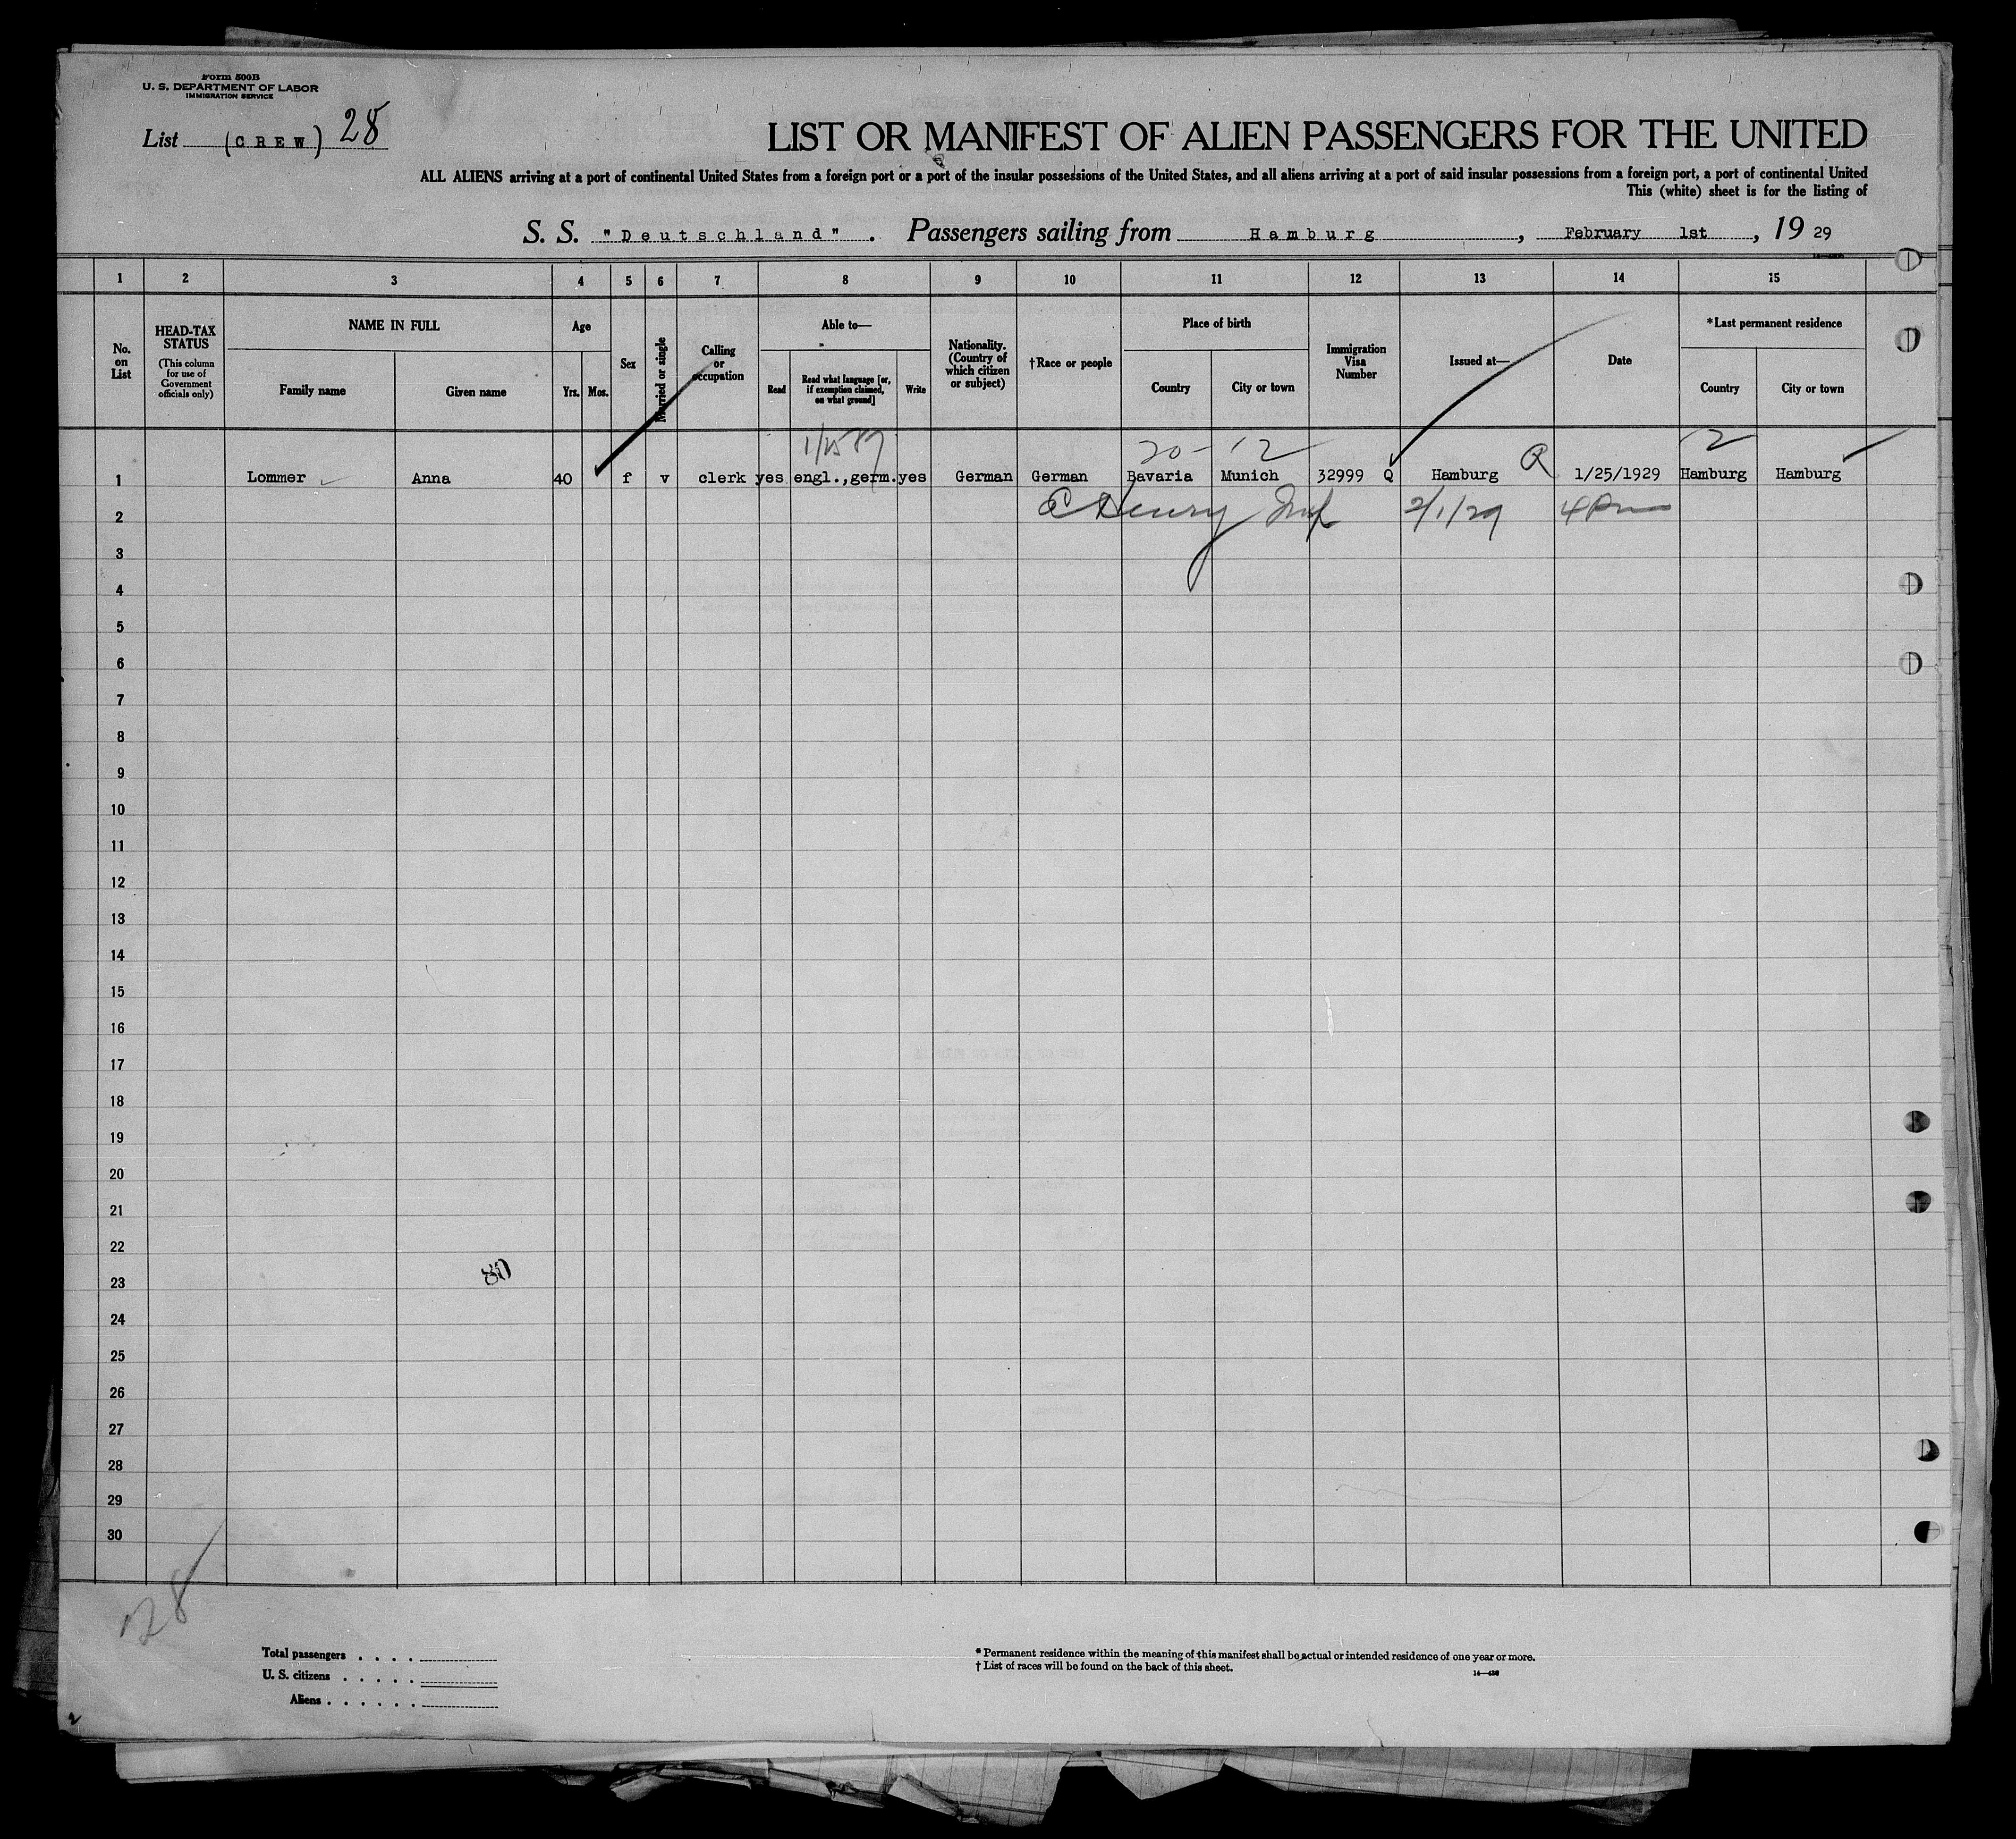 Form 500B
U. S. DEPARTMENT OF LABOR
IMMIGRATION SERVICE
List (CREW) 28
LIST OR MANIFEST OF ALIEN PASSENGERS FOR THE UNITED
ALL ALIENS arriving at a port of continental United States from a foreign port or a port of the insular possessions of the United States, and all aliens arriving at a port of said insular possessions from a foreign port, a port of continental United
This (white) sheet is for the listing of
S. S. "Deutschland". Passengers sailing from Hamburg, February 1st, 19 29
1 2 3 4 5 6 7 8 9 10 11 12 13 14 15
No. on List
HEAD-TAX STATUS
(This column for use of Government officials only)
NAME IN FULL
Family name
Given name
Age
Yrs. Mos.
Sex
Married or single
Calling or occupation
Able to—
Read
Read what language [or, if exemption claimed, on what ground]
Write
Nationality. (Country of which citizen or subject)
†Race or people
Place of birth
Country
City or town
Immigration Visa Number
Issued at—
Date
*Last permanent residence
Country
City or town
20- 12 2
1 Lommer Anna 40 f v clerk yes engl.,germ. yes German German Bavaria Munich 32999 Q Hamburg 1/25/1929 Hamburg Hamburg
2 Henry 2/1/29 4 Pm
3
4
5
6
7
8
9
10
11
12
13
14
15
16
17
18
19
20
21
22
80
23
24
25
26
27
28
29
30
28
Total passengers . . . .
U. S. citizens . . . . .
Aliens . . . . . .
* Permanent residence within the meaning of this manifest shall be actual or intended residence of one year or more.
† List of races will be found on the back of this sheet.